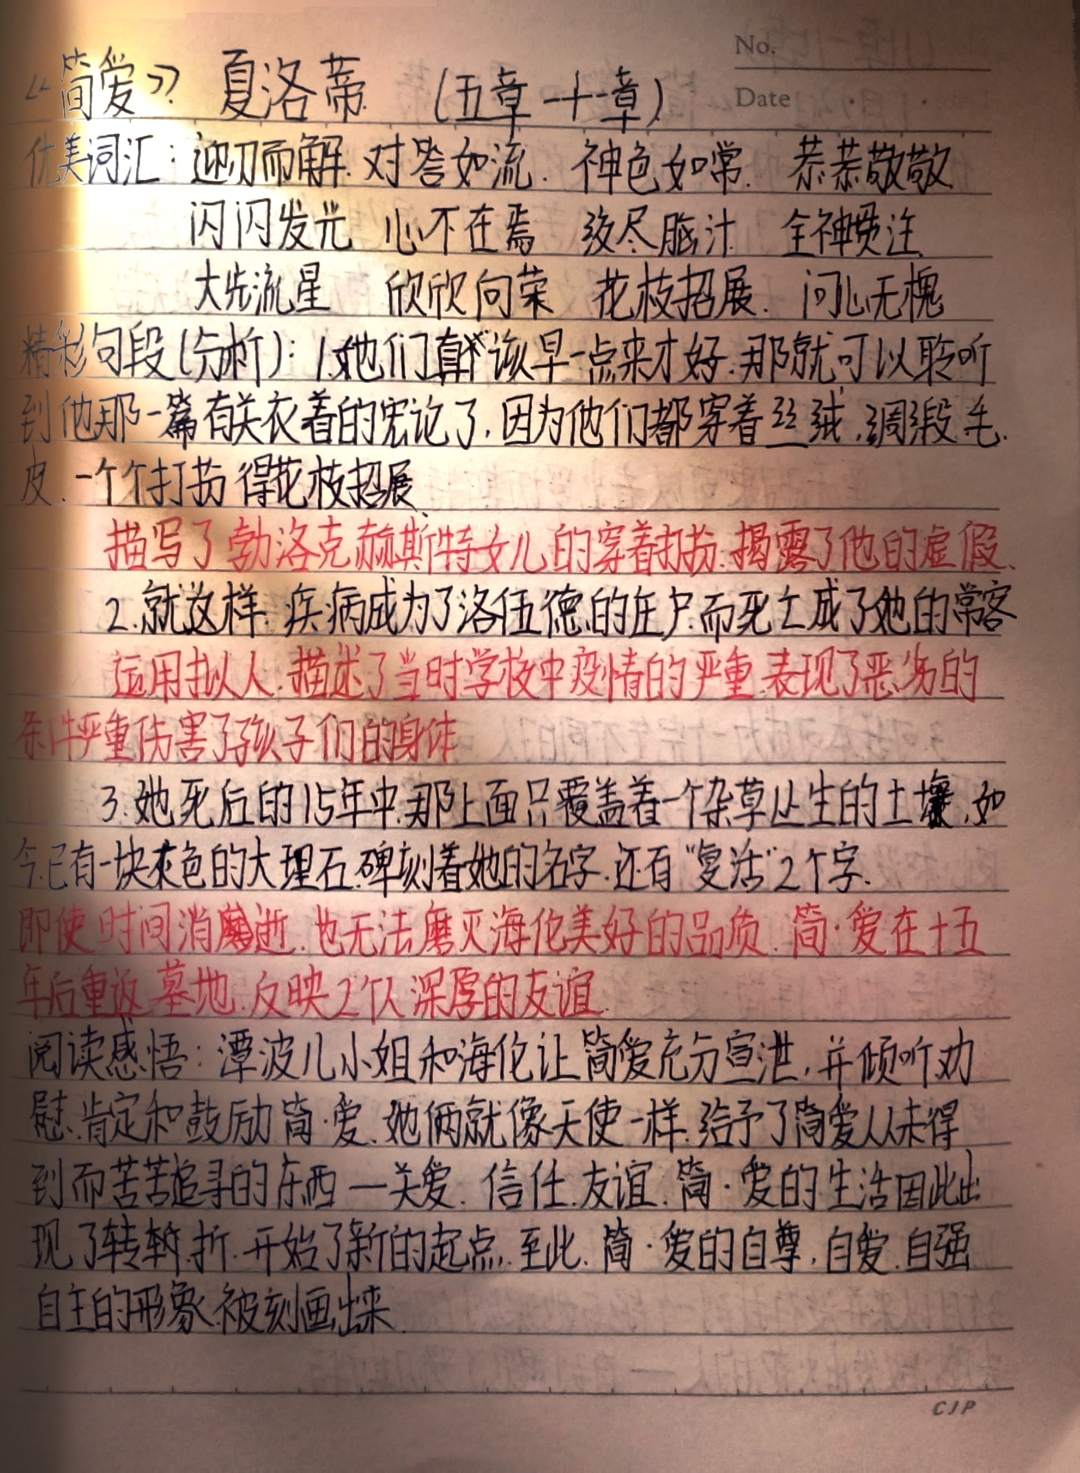 No.
《简爱》 夏洛蒂 (五章-十一章)
Date
优美词汇：迎刃而解. 对答如流. 神色如常. 恭恭敬敬
闪闪发光 心不在焉 绞尽脑汁 全神贯注
大步流星 欣欣向荣 花枝招展. 问心无愧
精彩句段(分析)：1.她们真该早一点来才好.那就可以聆听
到他那一篇有关衣着的宏论了.因为他们都穿着丝绒,绸缎毛
皮.一个个打扮得花枝招展.
描写了勃洛克赫斯特女儿的穿着打扮.揭露了他的虚假.
2.就这样.疾病成为了洛伍德的住户.而死亡成了她的常客
运用拟人.描述了当时学校中疫情的严重.表现了恶劣的
条件严重伤害了孩子们的身体
3.她死后的15年中.那上面只覆盖着一个杂草丛生的土壤.如
今.已有一块灰色的大理石.碑刻着她的名字.还有"复活"2个字.
即使时间消逝.也无法磨灭海伦美好的品质.简·爱在十五
年后重返墓地.反映2个人深厚的友谊.
阅读感悟：潭波儿小姐和海伦让简爱充分宣泄,并倾听劝
慰.肯定和鼓励简·爱.她俩就像天使一样.给予了简爱从未得
到而苦苦追寻的东西—关爱.信任.友谊.简·爱的生活因此出
现了转折.开始了新的起点.至此.简·爱的自尊,自爱.自强
自主的形象.被刻画出来.
CJP